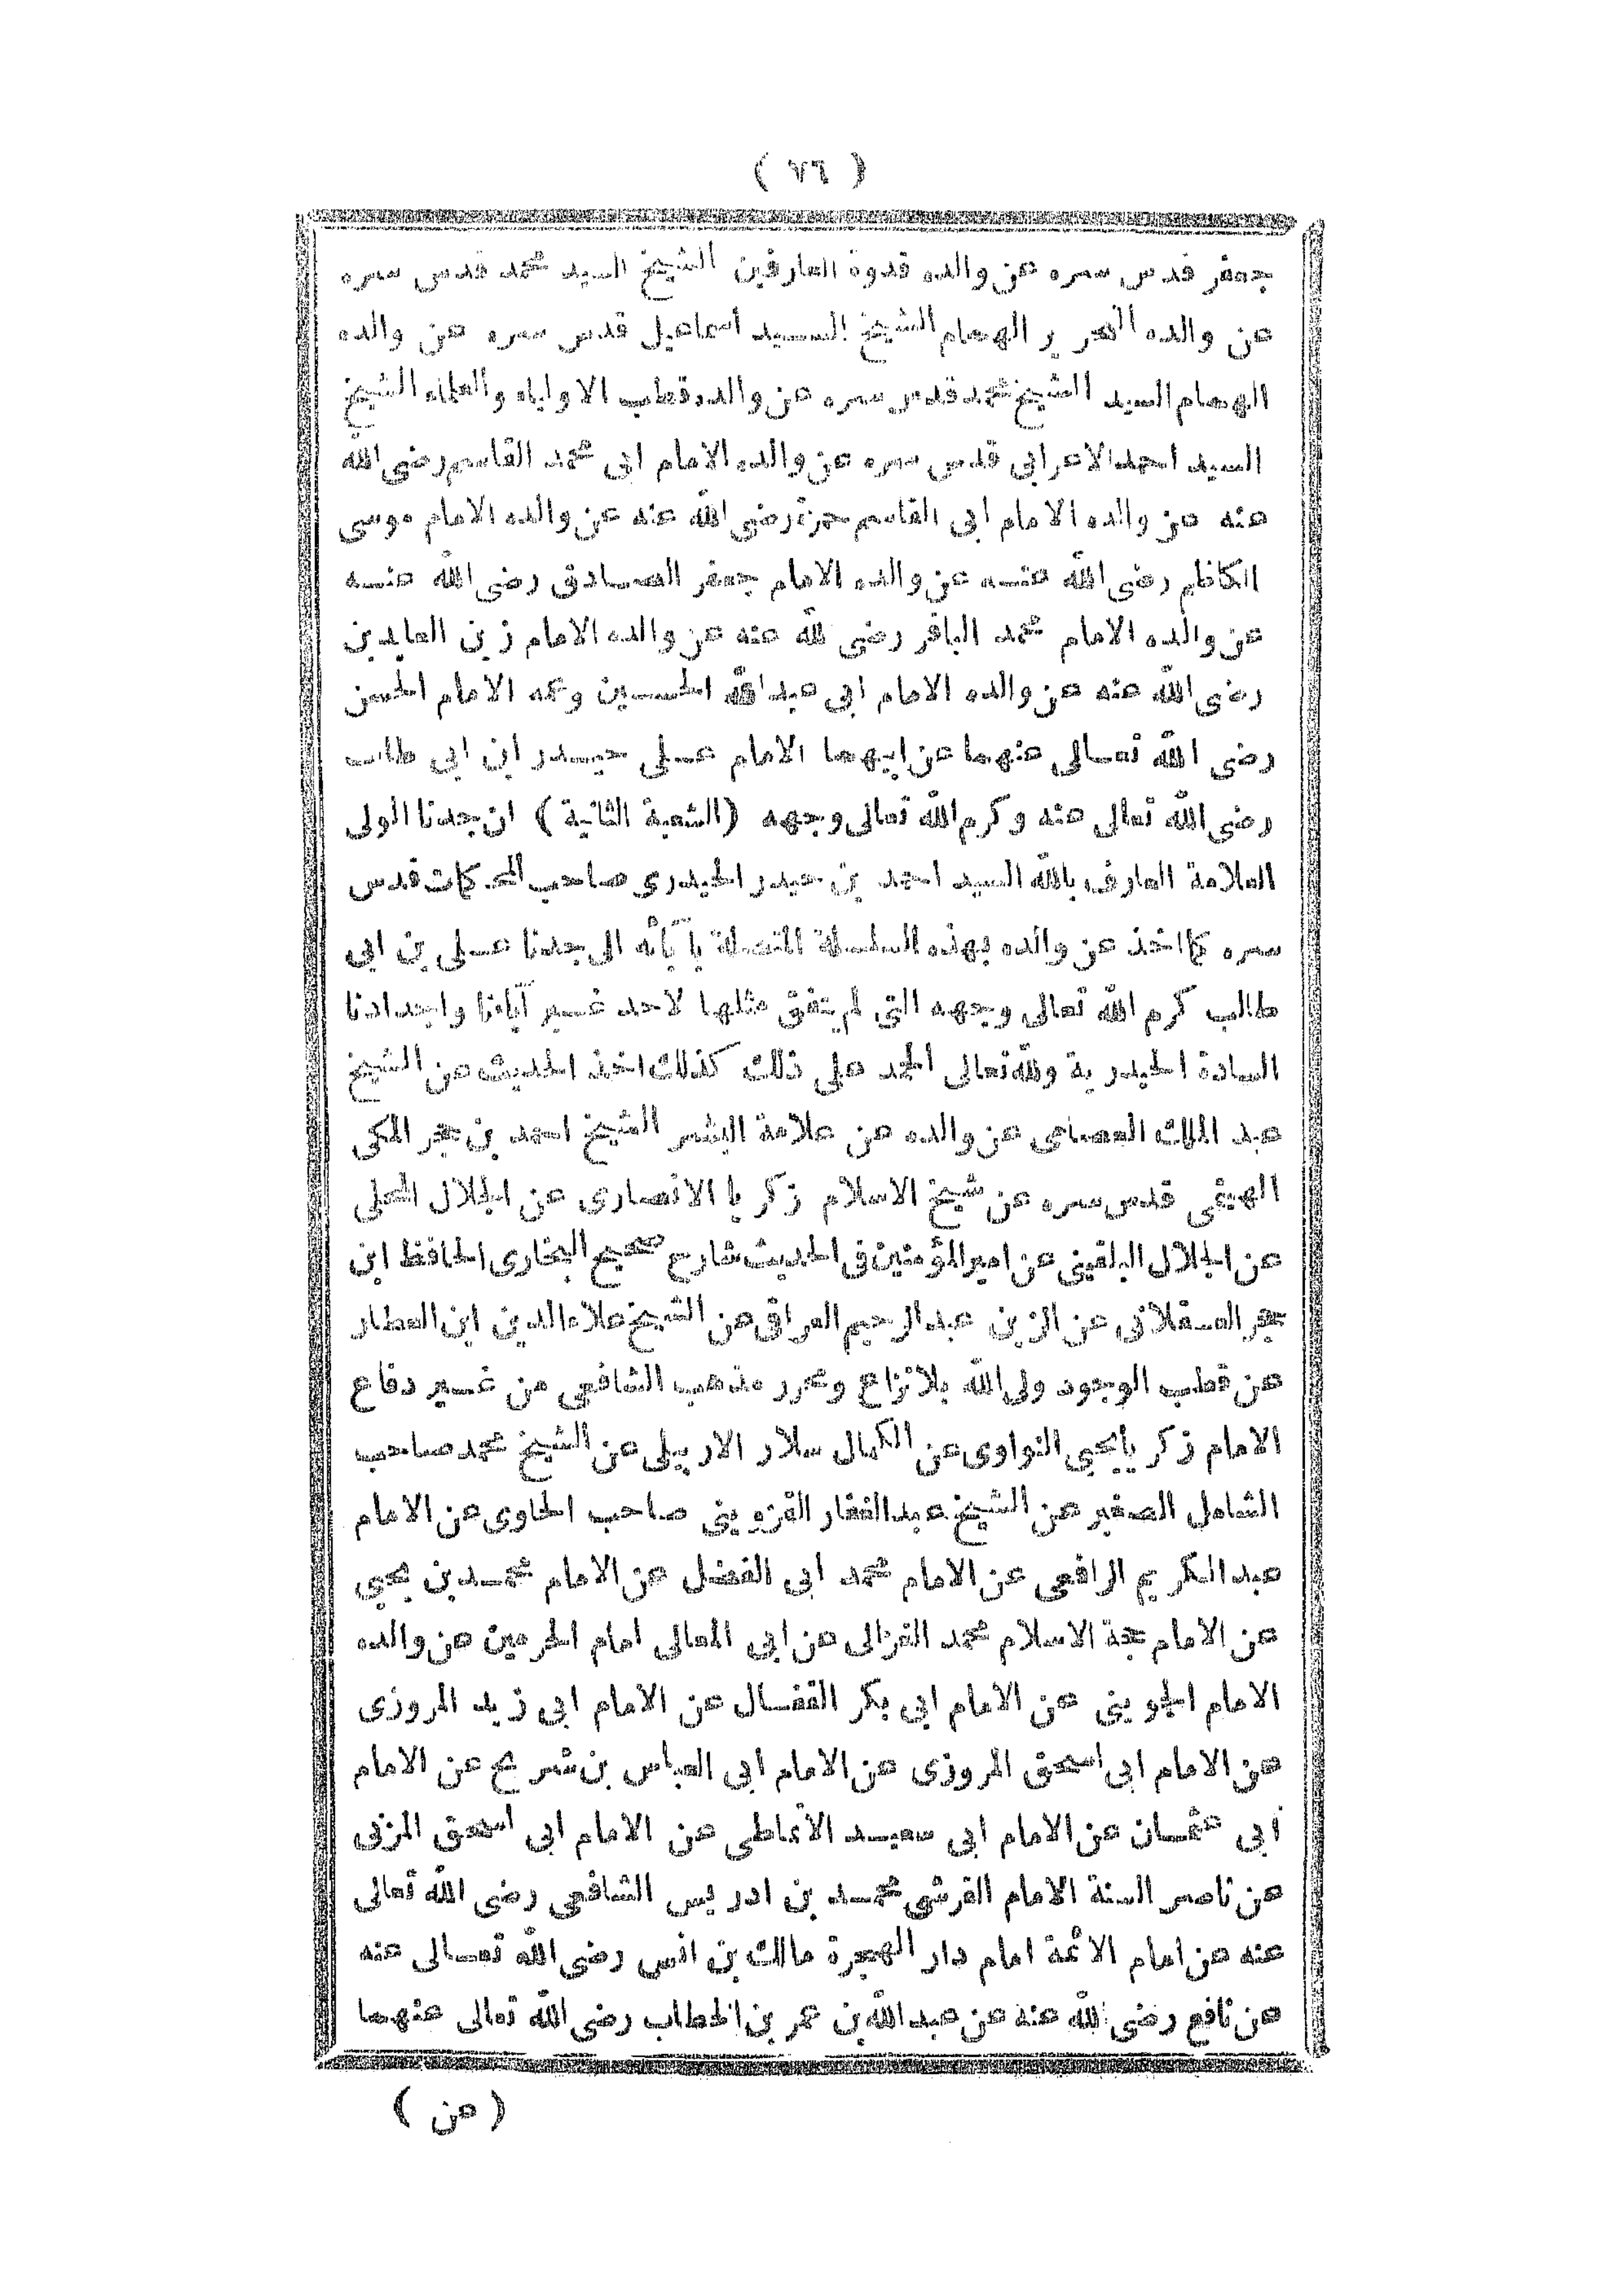 ( ٧٦ )
جعفر قدس سره عن والده قدوة العارفين الشيخ السيد محمد قدس سره
عن والده النحرير الهمام الشيخ السيد اسماعيل قدس سره عن والده
الهمام السيد الشيخ محمد قدس سره عن والده قطب الاولياء والعلماء الشيخ
السيد احمد الاعرابى قدس سره عن والده الامام ابى محمد القاسم رضى الله
عنه عن والده الامام ابى القاسم حمزة رضى الله عنه عن والده الامام موسى
الكاظم رضى الله عنه عن والده الامام جعفر الصادق رضى الله عنه
عن والده الامام محمد الباقر رضى الله عنه عن والده الامام زين العابدين
رضى الله عنه عن والده الامام ابى عبدالله الحسين وعمه الامام الحسن
رضى الله تعالى عنهما عن ابيهما الامام على حيدر ابن ابى طالب
رضى الله تعالى عنه وكرم الله تعالى وجهه (الشعبة الثانية) ان جدنا الولى
العلامة العارف بالله السيد احمد بن حيدر الحيدرى صاحب المحاكمات قدس
سره كما اخذ عن والده بهذه السلسلة المتصلة بآبائه الى جدنا على بن ابى
طالب كرم الله تعالى وجهه التى لم يتفق مثلها لاحد غير آبائنا واجدادنا
السادة الحيدرية ولله تعالى الحمد على ذلك كذلك اخذ الحديث عن الشيخ
عبد الملك العصامى عن والده عن علامة البشر الشيخ احمد بن حجر المكى
الهيتمى قدس سره عن شيخ الاسلام زكريا الانصارى عن الجلال المحلى
عن الجلال البلقينى عن امير المؤمنين فى الحديث شارح صحيح البخارى الحافظ ابن
حجر العسقلانى عن الزين عبد الرحيم العراقى عن الشيخ علاء الدين ابن العطار
عن قطب الوجود ولى الله بلا نزاع ومحرر مذهب الشافعى من غير دفاع
الامام زكريا يحيى النواوى عن الكمال سلار الاربيلى عن الشيخ محمد صاحب
الشامل الصغير عن الشيخ عبد الغفار القزوينى صاحب الحاوى عن الامام
عبد الكريم الرافعى عن الامام محمد ابى الفضل عن الامام محمد بن يحيى
عن الامام حجة الاسلام محمد الغزالى عن ابى المعالى امام الحرمين عن والده
الامام الجوينى عن الامام ابى بكر القفال عن الامام ابى زيد المروزى
عن الامام ابى اسحق المروزى عن الامام ابى العباس بن شريح عن الامام
ابى عثمان عن الامام ابى سعيد الانماطى عن الامام ابى اسحق المزنى
عن ناصر السنة الامام القرشى محمد بن ادريس الشافعى رضى الله تعالى
عنه عن امام الائمة امام دار الهجرة مالك بن انس رضى الله تعالى عنه
عن نافع رضى الله عنه عن عبد الله بن عمر بن الخطاب رضى الله تعالى عنهما
( عن )